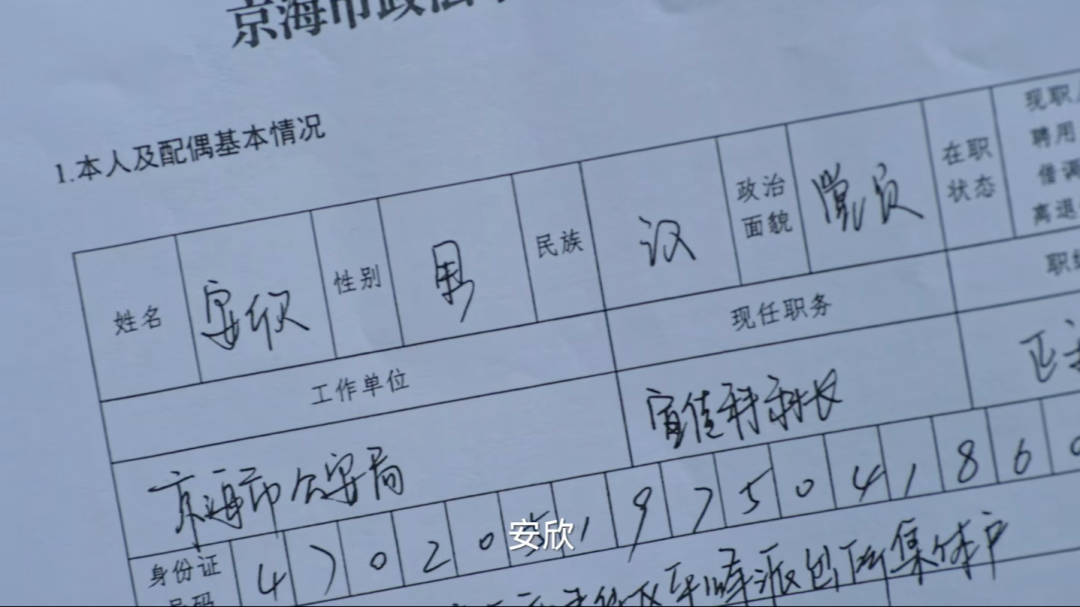 京海市政法
1.本人及配偶基本情况
姓名 安欣 性别 男 民族 汉 政治面貌 党员 在职状态 现职 聘用 借调 离退
工作单位 现任职务 职级
京海市公安局 宣传科科长 正
身份证号码 4 7 0 2 0 5 1 9 7 5 0 4 1 8 6 0
派出所集体户
安欣